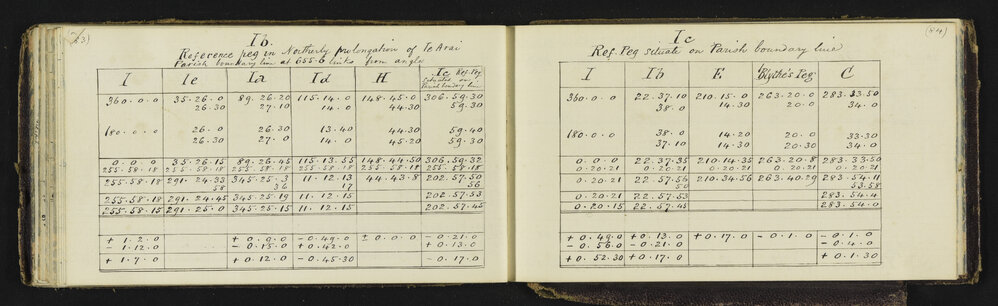 (83)
Ib.
Reference peg in Northerly prolongation of Te Arai
Parish boundary line at 655.6 links from angle
I Ie Ia Id H Ic Ref. Peg
situate on
Parish boundary line
360.0.0 35.26.0 89.26.20 115.14.0 148.45.0 306.59.30
26.30 27.10 14.0 44.30 59.30
180.0.0 26.0 26.30 13.40 44.30 59.40
26.30 27.0 14.0 45.20 59.30
0.0.0 35.26.15 89.26.45 115.13.55 148.44.50 306.59.32
255.58.18 255.58.18 255.58.18 255.58.18 255.58.18 255.58.18
255.58.18 291.24.33 345.25.3 11.12.13 44.43.8 202.57.50
58 36 17 56
255.58.18 291.24.45 345.25.19 11.12.15 202.57.53
255.58.15 291.25.0 345.25.15 11.12.15 202.57.45
+1.2.0 +0.0.0 -0.49.0 ±0.0.0 -0.21.0
-1.12.0 -0.15.0 +0.42.0 +0.13.0
+1.7.0 +0.12.0 -0.45.30 -0.17.0
(84)
Ic
Ref. Peg situate on Parish boundary line
I Ib E Blythe's Peg C
360.0.0 22.37.10 210.15.0 263.20.0 283.33.50
38.0 14.30 20.0 34.0
180.0.0 38.0 14.20 20.0 33.30
37.10 14.30 20.30 34.0
0.0.0 22.37.35 210.14.35 263.20.8 283.33.50
0.20.21 0.20.21 0.20.21 0.20.21 0.20.21
0.20.21 22.57.56 210.34.56 263.40.29 283.54.11
50 53.58
0.20.21 22.57.53 283.54.4
0.20.15 22.57.45 283.54.0
+0.49.0 +0.13.0 +0.17.0 -0.1.0 -0.1.0
-0.56.0 -0.21.0 -0.4.0
+0.52.30 +0.17.0 +0.1.30